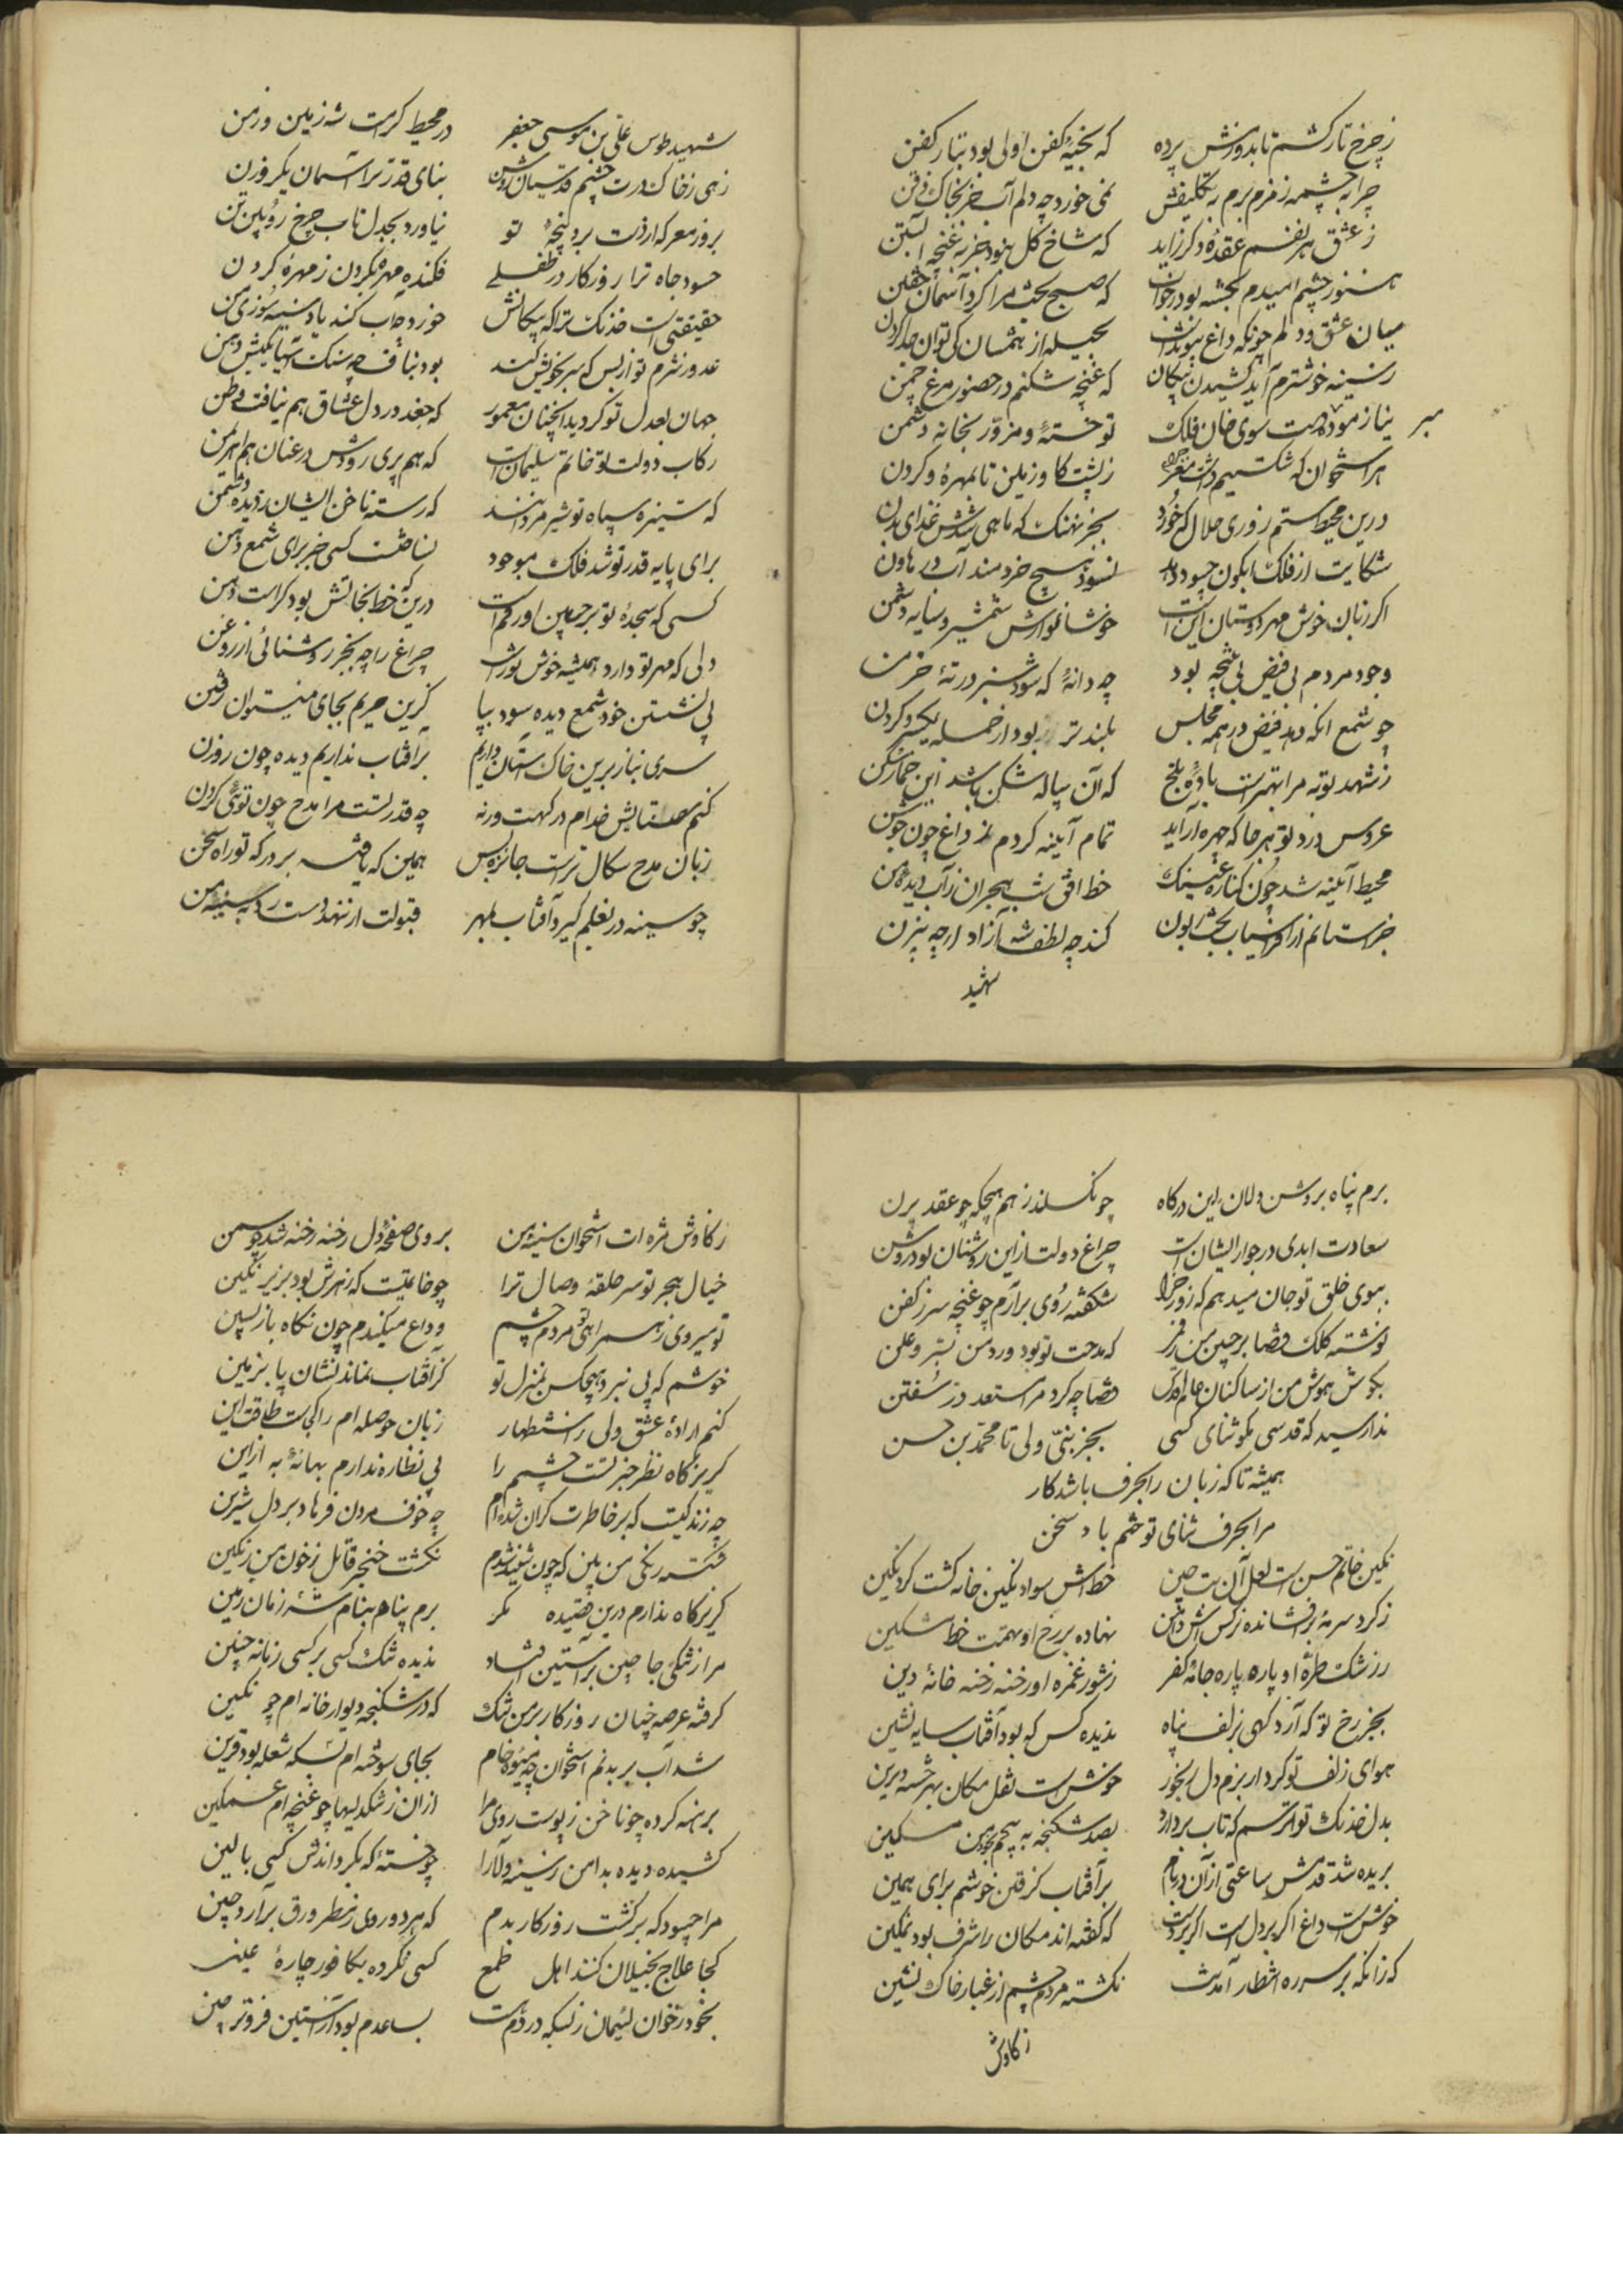 ز چرخ تار کشم تا بدوزمش پرده که بخیهٔ کفن اولی بود بتار کفن
چرا به چشمه زمزم برم به تکلیفش نمی خورد چه دلم آب جز بخاک ذقن
ز عشق هر نفسم عقدهٔ دکر زاید که شاخ کل نبود جز به غنچه آبستن
هنوز چشم امیدم بجشه بود در خواب که صبح بخت مرا کرد آسمان
میان عشق و دلم چونکه داغ پیوند است بحیله از هم شان کی توان جدا کردن
ز سینه خوشترم آید کشیدن پیکان که غنچه شکنم در حضور مرغ چمن
مبر نیاز مودهٔ همت سوی خان فلک تو خستهٔ و مزور بخانه دشمن
هر استخوان که شکستیم داشت مغز ز پشت کاو زمین تا بمهرهٔ کردن
درین محیط ستم روزی حلال که خورد بجز نهنک که ماهی شدش غذای بدن
شکایت از فلک ابکون چسود دهد نسود هیچ خردمند آب در هاون
اکر زبان خوش مهر دوستان این است خوشا نوازش شمشیر و سایه دشمن
وجود مردم بی فیض بی نتیجه بود چه دانهٔ که شود سبز در ته خرمن
چو شمع انکه دهد فیض در همه مجلس بلندتر بود از جمله یکسر و کردن
ز شهد توبه مرا بهتر است بادهٔ تلخ که آن پیاله شکن باشد این خمار شکن
عروس درد تو هر جا که چهره آراید تمام آینه کردم ز داغ چون جوشن
محیط آینه شد چون کناره عینک خط افق شب هجران ز آب دیدهٔ من
خراستانم از افراسیاب بخت زبون کند چه لطف شه آزاد از چه بیژن
شهید
شهید طوس علی بن موسی جعفر در محیط کرامت شه زمین و زمن
زهی ز خاک درت چشم قدسیان روشن بنای قدر ترا آسمان یک روزن
بروز معرکه از دست برد پنجهٔ تو نیاورد بجدل تاب چرخ رویین تن
حسود جاه ترا روزکار در طفلی فکنده مهره بکردن ز مهرهٔ کردن
حقیقتی است خدنک ترا که پیکانش خورد چه آب کند یاد سینهٔ دشمن
عدو ز شرم تو از بس که سر بخویش کشد بود بناف چه سنک آسیا بکیش دهن
جهان بعدل تو کردید انچنان معمور که جغد در دل عشاق هم نیافت وطن
رکاب دولت تو خاتم سلیمان است که هم پری رودش در عنان هم اهرمن
که ستیزه سپاه تو شیر مردانند که رسته ناخن ایشان ز دیدهٔ دشمن
برای پایه قدر تو شد فلک موجود نساخت کسی جز برای شمع لکن
کسی که سجدهٔ تو بر جبین او رقم است درین که خط نجاتش بود کراست سخن
دلی که مهر تو دارد همیشه خوش نور است چراغ را چه بجز روشنائی از روغن
پی نشستن خود شمع دیده سود بپا کزین حریم بجای نمیتوان رفتن
سری نیاز برین خاک آستان داریم بر آفتاب نداریم دیده چون روزن
کنم ستایش خدام درکهت ورنه چه قدرتست مرا مدح چون توئی کردن
زبان مدح سکال ترا است جایزه بس همین که یافته بر درکه تو راه سخن
چو سینه در بغلم کیرد آفتاب بمهر قبولت ار ننهد دست رد به سینهٔ من
برم پناه بروشن دلان این درکاه چو نکسلند ز هم هیچکه چو عقد پرن
سعادت ابدی در جوار ایشان است چراغ دولت ازین روشنان بود روشن
ببوی خلق تو جان میدهم که روز جزا شکفته روی برآرم چو غنچه سر ز کفن
نوشته کلک قضا بر جبین من ز قمر که مدحت تو بود ورد من بسر و علن
بکوش هوش من از ساکنان عالم قدس قضا چه کرد مرا مستعد در سفتن
ندا رسید که قدسی مکو ثنای کسی بجز نبی و ولی تا محمد بن حسن
همیشه تا که زبان را بحرف باشد کار
مرا بحرف ثنای تو ختم باد سخن
نکین خاتم حسن است لعل آن بت چین خط اش سواد نکین خانه کشت کرد نکین
ز کرد سرمه برافشانده نرکس اش دامن نهاده بر رخ او تهمت خط مشکین
ز رشک طرهٔ او پاره پاره جامهٔ کفر ز شور غمزه او رخنه رخنه خانهٔ دین
بجز رخ تو که آرد کهی بزلف پناه ندیده کس که بود آفتاب سایه نشین
هوای زلف تو کرد از برم دل رنجور خوش است نقل مکان بهر خستهٔ دیرین
بدل خدنک تو ترسم که تاب بردارد بصد شکنجه به پیچم بخود من مسکین
بریده شد قدمش ساعتی ازان در بام بر آفتاب کرفتن خوشم برای همین
خوش است داغ اکر بر دل است اکر بر دست که کفته اند مکان را شرف بود بمکین
که زانکه بر سر ره انتظار آمدنت نکشته مردم چشم از غبار خاک نشین
ز کاوش
ز کاوش مژه ات استخوان سینهٔ من بروی صفحهٔ دل رخنه رخنه شد چو سمن
خیال هجر تو سر حلقهٔ وصال ترا چو خاتمیست که زهرش بود بزیر نکین
تو میروی ز سر راهی و مردم چشم وداع میکندم چون نکاه بازپسین
خوشم که پی نبرد هیچکس بمنزل تو کز آفتاب نماند نشان پا بزمین
کنم ارادهٔ عشق ولی ز استظهار زبان حوصله ام را کجاست طاقت این
کریز کاه نظر جز تو نیست چشم را پی نظاره ندارم بهانهٔ به ازین
چه زندکیست که بر خاطرت کران شده ام چه خوف مردن فرهاد بر دل شیرین
شکسته رنکی من بین که چون شهید شدم نکشت خنجر قاتل ز خون من رنکین
کریز کاه ندارم درین قصیده مکر برم پناه بنام شهٔ زمان و زمین
مرا ز تنکی جا چین بر آستین افتاد ندیده تنک کسی بر کسی زمانه چنین
کرفته عرصه چنان روزکار بر من تنک که در شکنجه دیوار خانه ام چو نکین
شد آب بر بدنم استخوان چه میوهٔ خام بجای سوخته ام بسکه شعله بود قرین
برهنه کرده چو ناخن ز پوست روی مرا ازان ز تنکدلیها چو غنچه ام غمکین
کشیده دیده بدامن ز سینه دلارا چو خستهٔ که بکرداندش کسی بالین
مرا چسود که برکشت روزکار بدم که هر دو روی ز سطر ورق برآرد چین
کجا علاج بخیلان کنند اهل طمع کسی نکرده بکافور چارهٔ عینین
بخود ز خوان لئیمان ز بسکه در ذم است بساعدم بود از آستین فزونتر چین